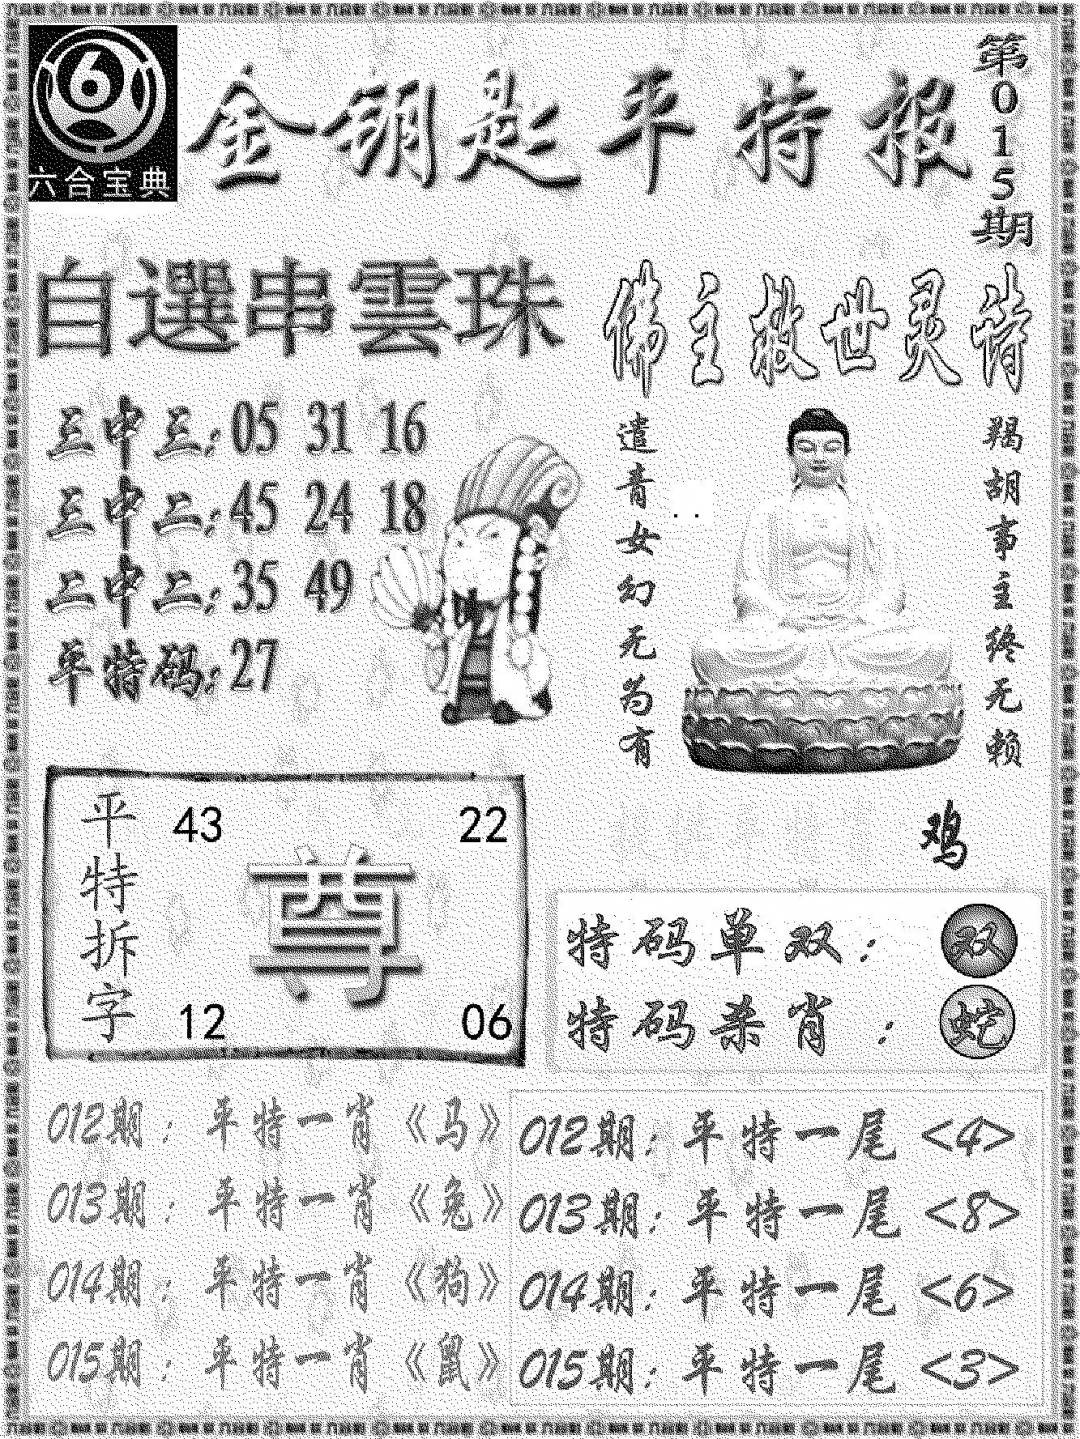 六合宝典
金钥匙平特报
第015期
自選串雲珠
三中三:05 31 16
三中二:45 24 18
二中二:35 49
平特码:27
佛主救世灵诗
羯胡事主终无赖
遣青女幻无为有
鸡
平特拆字
43 22
尊
12 06
特码单双: 双
特码杀肖: 蛇
012期:平特一肖《马》
013期:平特一肖《兔》
014期:平特一肖《狗》
015期:平特一肖《鼠》
012期:平特一尾<4>
013期:平特一尾<8>
014期:平特一尾<6>
015期:平特一尾<3>